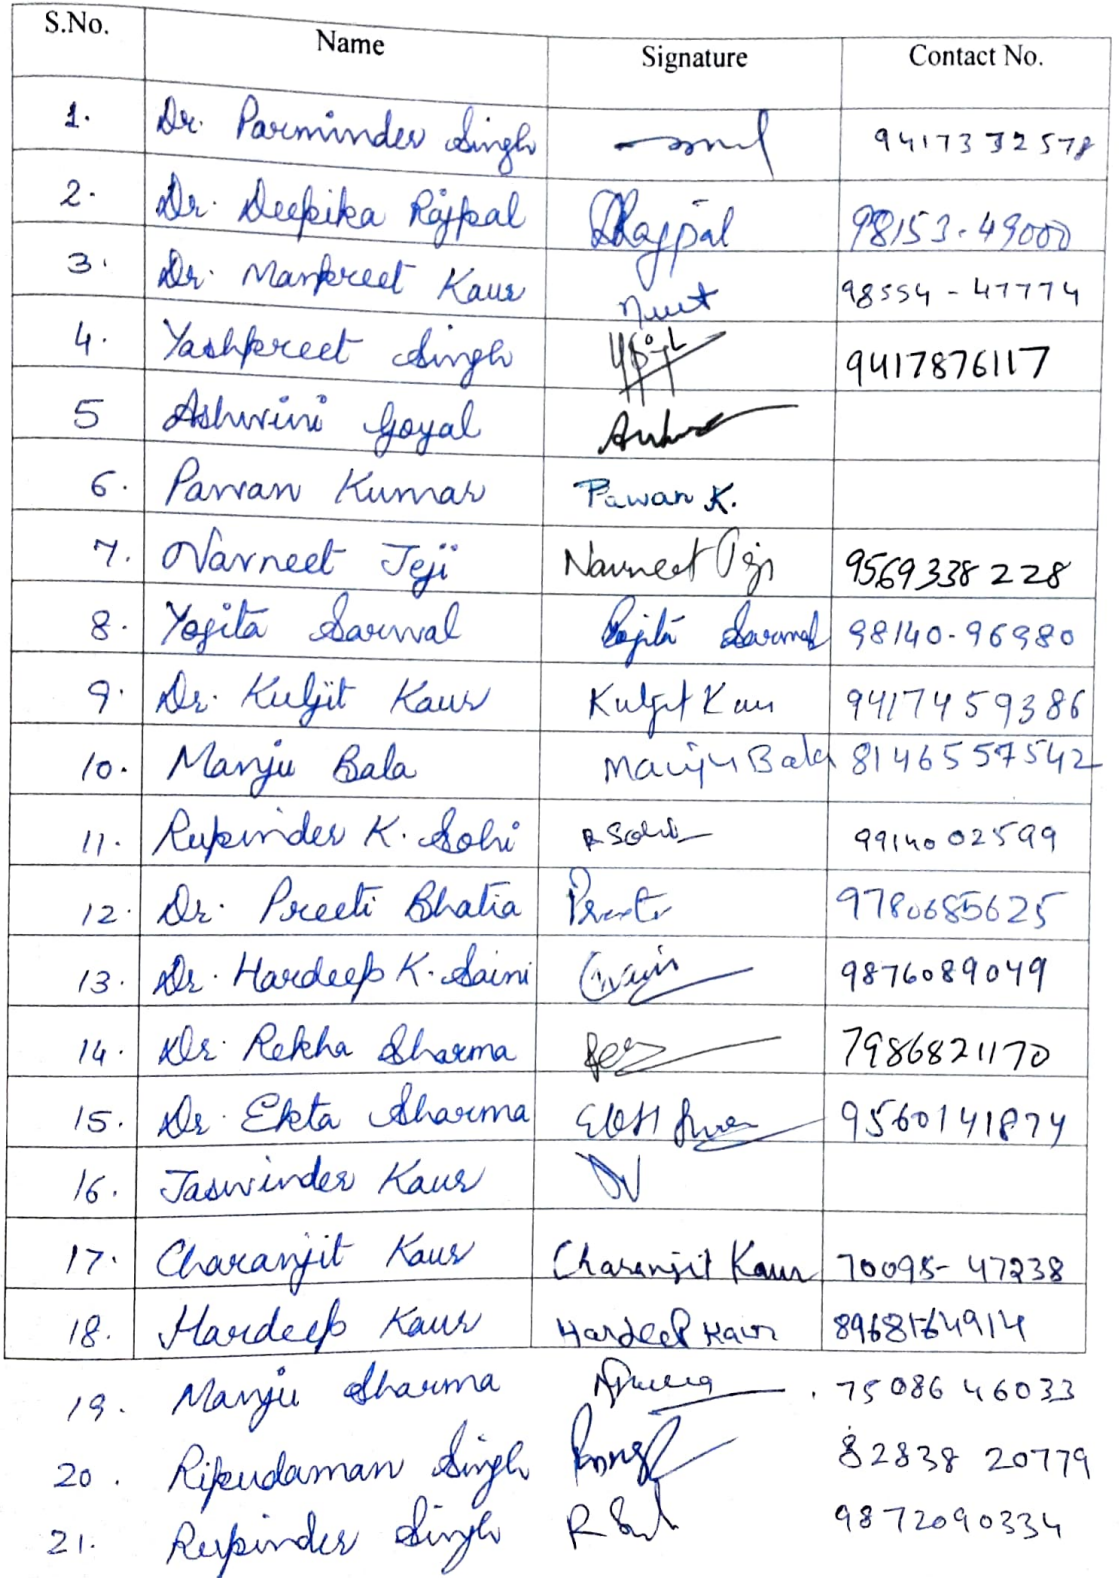 S.No. Name Signature Contact No.
1. Dr. Parminder Singh 9417332578
2. Dr. Deepika Rajpal DRajpal 98153-49000
3. Dr. Manpreet Kaur 98554-47774
4. Yashpreet Singh 9417876117
5 Ashwini Goyal
6. Pawan Kumar Pawan K.
7. Navneet Jeji Navneet Jeji 9569338228
8. Yogita Sarwal Yogita Sarwal 98140-96980
9. Dr. Kuljit Kaur Kuljit Kaur 9417459386
10. Manju Bala Manju Bala 8146557542
11. Rupinder K. Sohi R Sohi 9914002599
12. Dr. Preeti Bhatia Preeti 9780685625
13. Dr. Hardeep K. Saini 9876089049
14. Dr. Rekha Sharma 7986821170
15. Dr. Ekta Sharma 9560141874
16. Jaswinder Kaur
17. Charanjit Kaur Charanjit Kaur 70098-47238
18. Hardeep Kaur Hardeep Kaur 8968164914
19. Manju Sharma 75086 46033
20. Ripudaman Singh 82838 20779
21. Rupinder Singh 9872090334